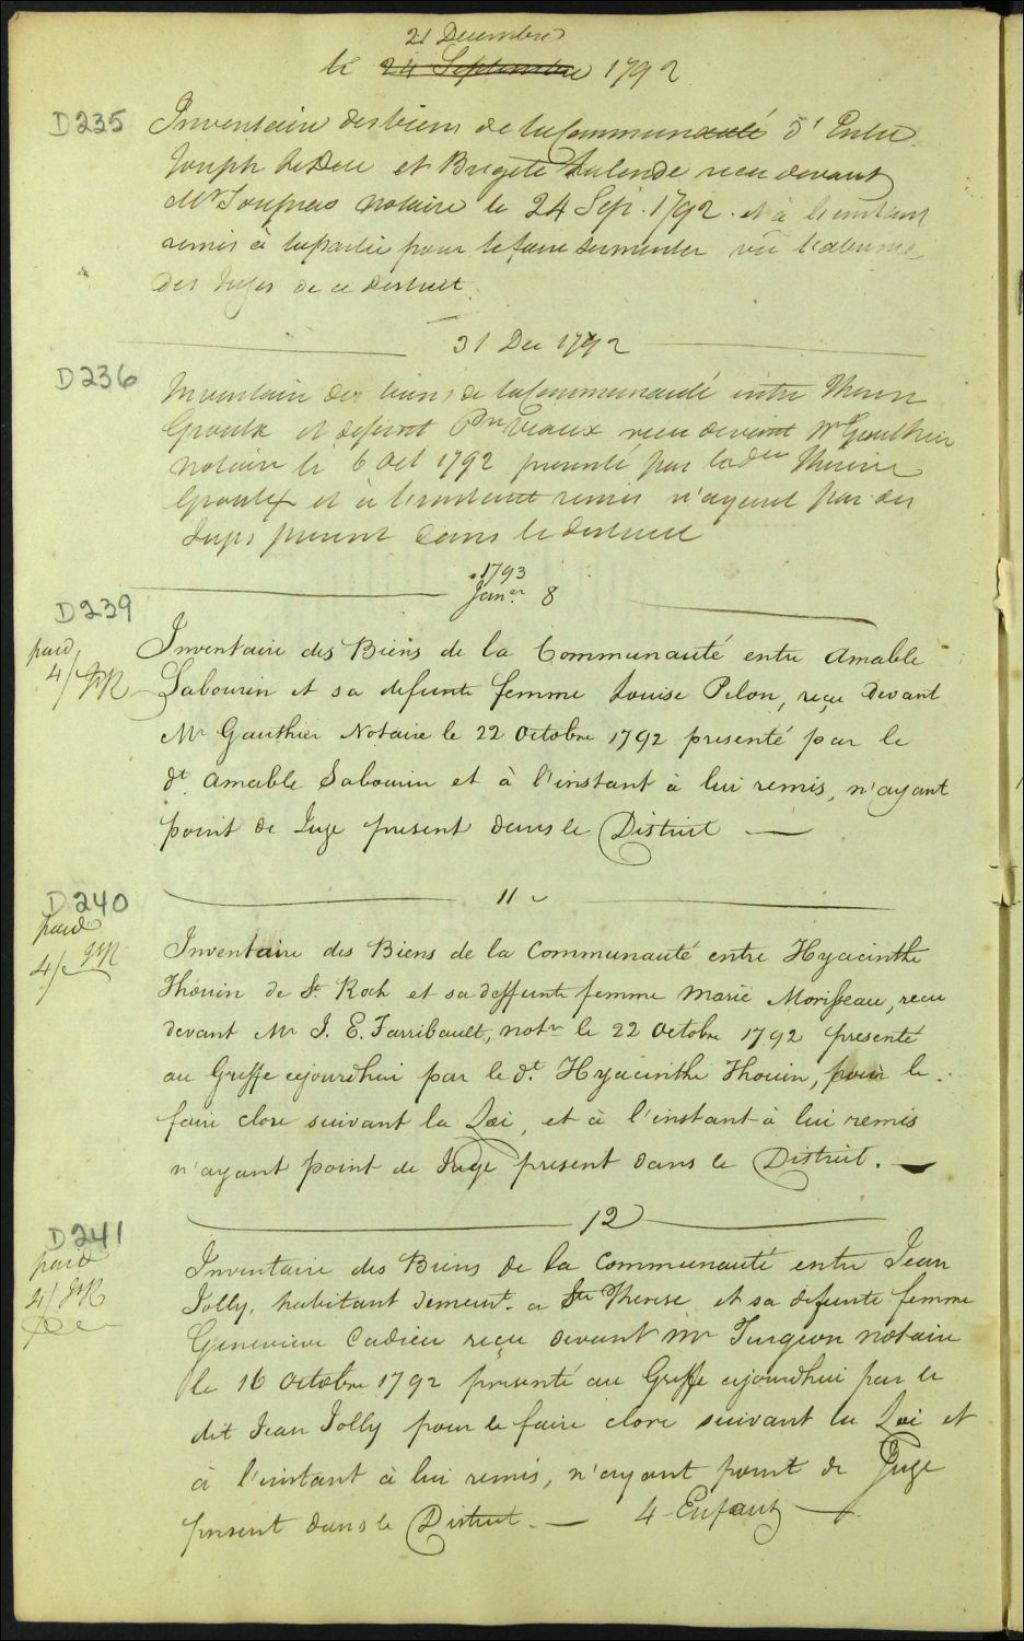 21 Decembre
le 24 Septembre 1792
D235 Inventaire des biens de la Communauté d'Entre
Joseph et Brigete Lalonde recu devant
Mr notaire le 24 Sep. 1792. et à l'instant
remis à la partie pour le faire vû l'absence
des Juges de ce District
31 Dec 1792
D236 Inventaire des biens de la Communauté entre Therese
Groulx et defunt recu devant Mr Gauthier
notaire le 6 Oct 1792 presenté par lade Therese
Groulx et à l'instant remis n'ayant pas des
Juges present dans le District
1793
D239 Janer. 8
paid Inventaire des Biens de la Communauté entre Amable
4/ JR Sabourin et sa defunte femme Louise Pilon, reçu devant
Mr Gauthier Notaire le 22 Octobre 1792 presenté par le
dt. Amable Sabourin et à l'instant à lui remis, n'ayant
point de Juge present dans le District —
D240 11
paid
4/ JR Inventaire des Biens de la Communauté entre Hyacinthe
Thouin de St. Roch et sa deffunte femme Marie Morisseau, recu
devant Mr J. E. Farribault, notre le 22 Octobre 1792 presenté
au Greffe ajourdhui par le dt. Hyacinthe Thouin, pour le
faire clore suivant la Loi, et à l'instant à lui remis
n'ayant point de Juge present dans le District. —
D241 12
paid Inventaire des Biens de la Communauté entre Jean
4/ JR Jolly, habitant demeurt. a Ste Therese et sa defunte femme
Genevieve Cadieu reçu devant Mr Turgeon notaire
le 16 Octobre 1792 presenté au Greffe ajourdhui par le
dit Jean Jolly pour le faire clore suivant la Loi et
à l'instant à lui remis, n'ayant point de Juge
present dans le District. — 4 Enfants —